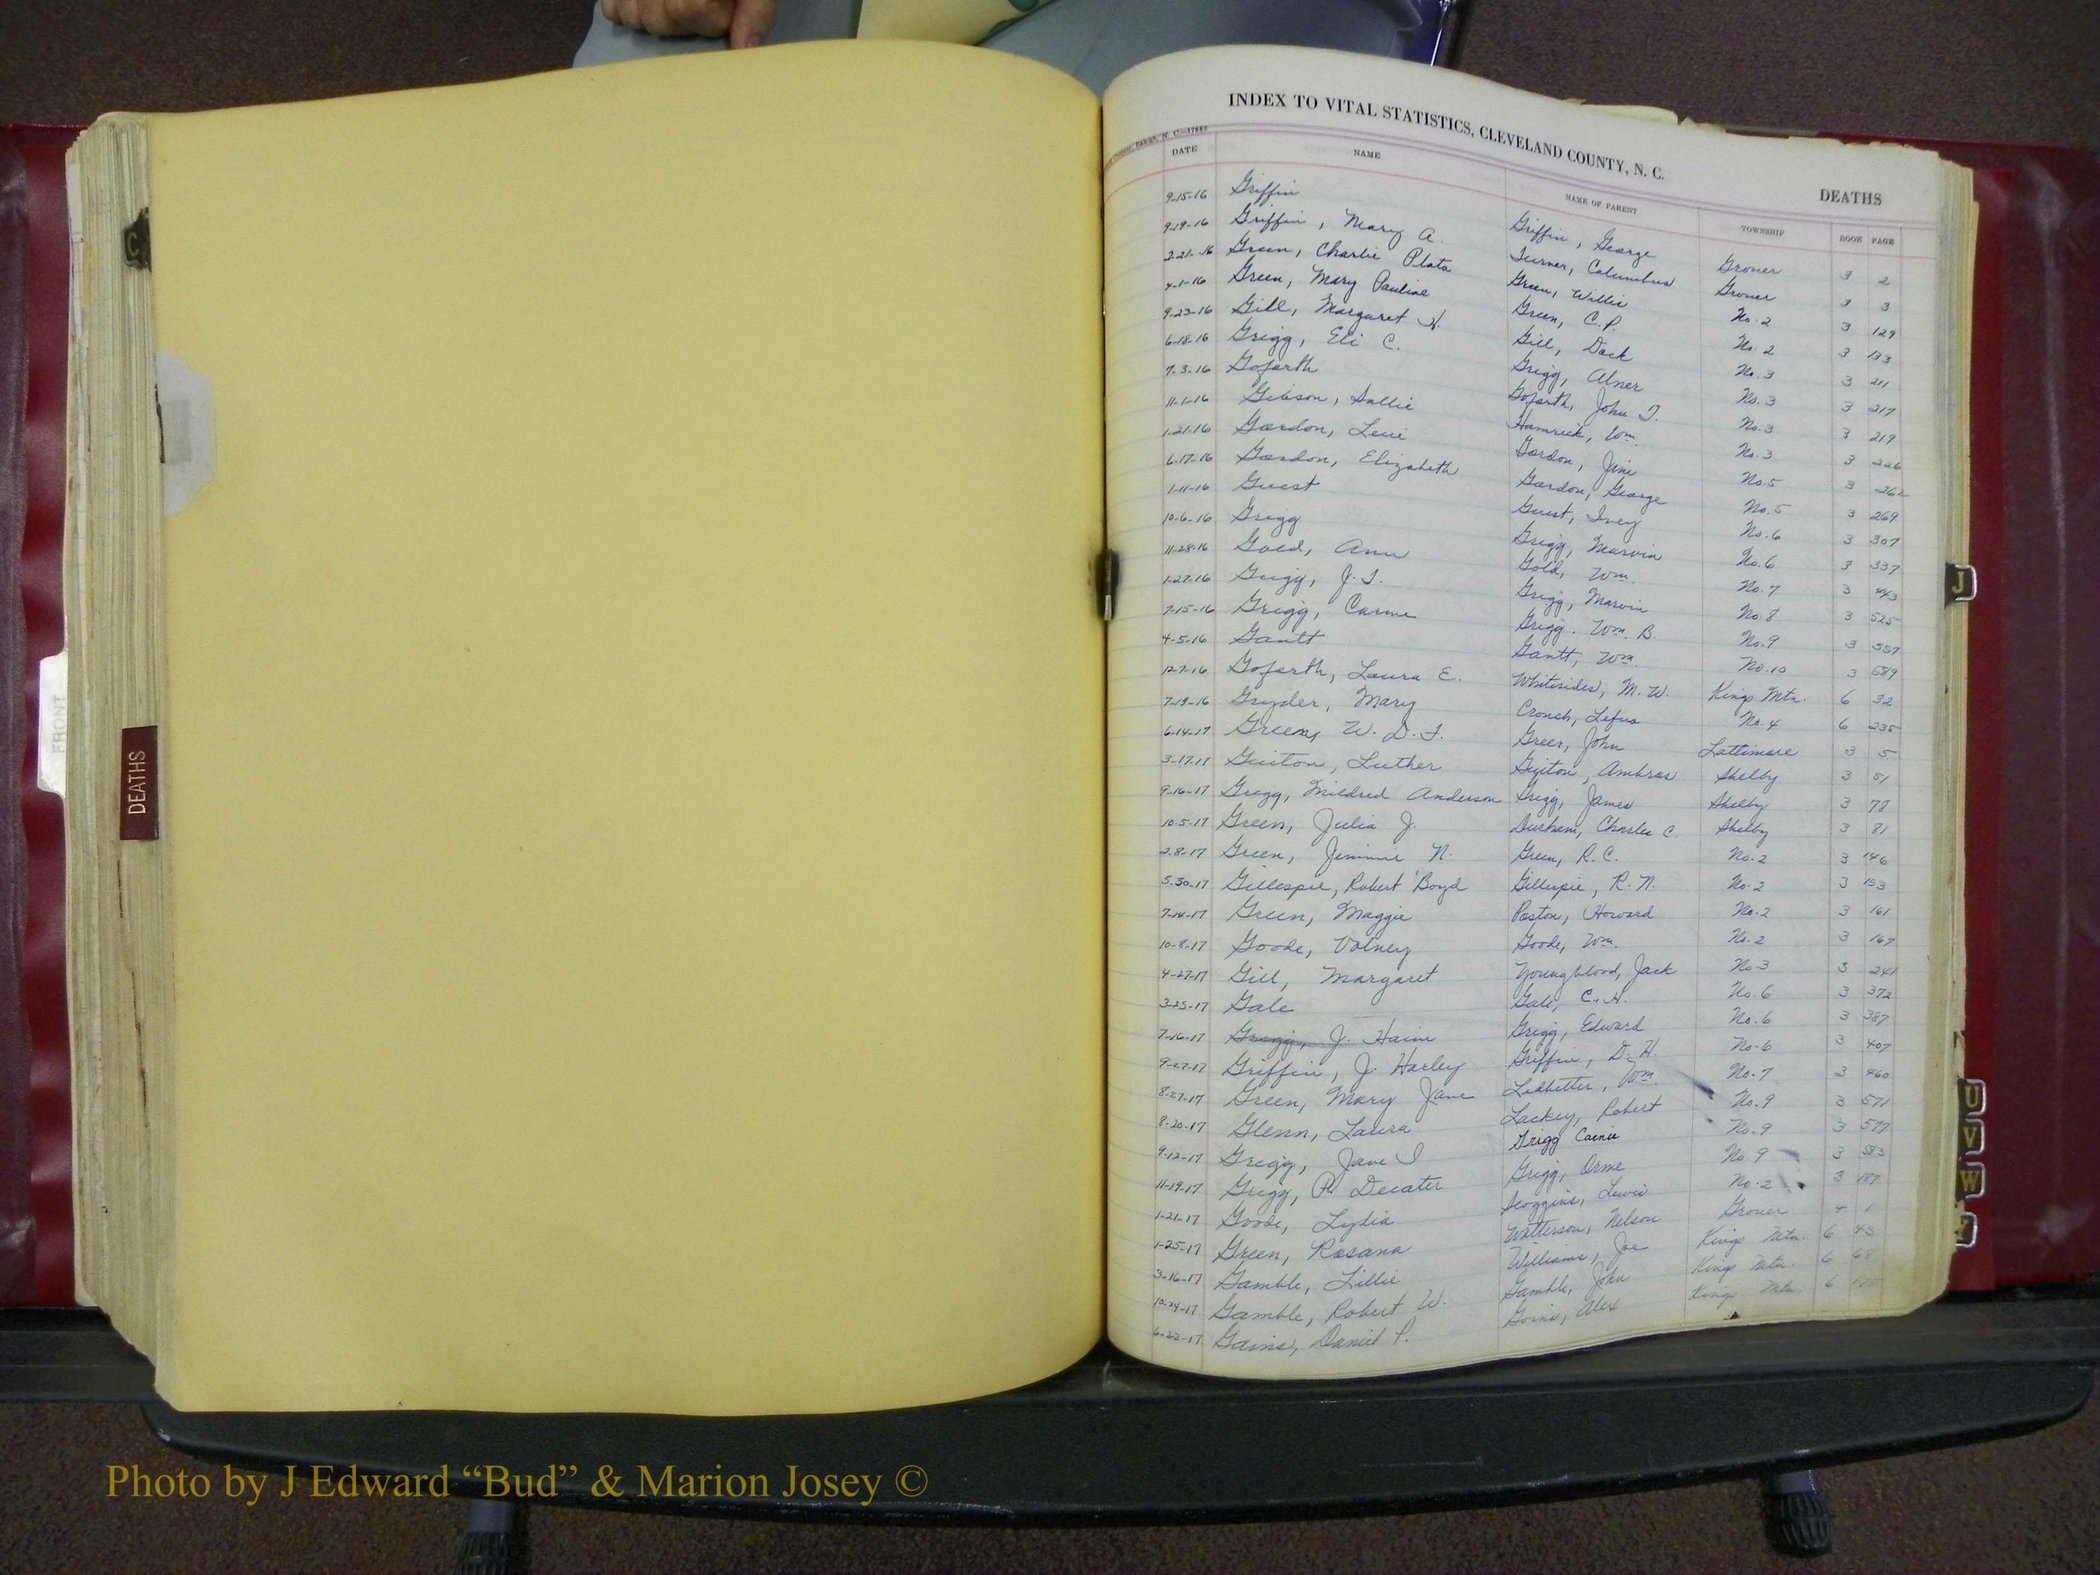 INDEX TO VITAL STATISTICS, CLEVELAND COUNTY, N. C.
DEATHS
DATE NAME NAME OF PARENT TOWNSHIP BOOK PAGE
9-15-16 Griffin Griffin, George Grover 3 2
9-19-16 Griffin, Mary A. Turner, Columbus Grover 3 3
2-21-16 Green, Charlie Plato Green, Willie No. 2 3 129
4-1-16 Green, Mary Pauline Green, C.P. No. 2 3 133
9-23-16 Gill, Margaret H. Gill, Dock No. 3 3 211
6-18-16 Grigg, Eli C. Grigg, Abner No. 3 3 217
7-3-16 Goforth Goforth, John T. No. 3 3 219
11-1-16 Gibson, Sallie Hamrick, Wm. No. 3 3 226
1-21-16 Gordon, Levi Gordon, Jim No. 5 3 262
6-17-16 Gordon, Elizabeth Gordon, George No. 5 3 269
1-11-16 Guest Guest, Ivey No. 6 3 307
10-6-16 Grigg Grigg, Marvin No. 6 3 337
11-28-16 Gold, Ann Gold, Wm. No. 7 3 443
1-27-16 Grigg, J. T. Grigg, Marvin No. 8 3 525
7-15-16 Grigg, Carme Grigg. Wm. B. No. 9 3 557
4-5-16 Gantt Gantt, Wm. No. 10 3 589
12-7-16 Goforth, Laura E. Whitesides, M. W. Kings Mtn. 6 32
7-19-16 Gryder, Mary Crouch, Lefus No. 4 6 235
6-14-17 Green, W. D. F. Greer, John Lattimore 3 5
3-17-17 Guiton, Luther Guiton, Ambros Shelby 3 51
9-16-17 Grigg, Mildred Anderson Grigg, James Shelby 3 78
10-5-17 Green, Julia J. Durham, Charles C. Shelby 3 81
2-8-17 Green, Jimmie N. Green, R. C. No. 2 3 146
5-30-17 Gillespie, Robert Boyd Gillespie, R. N. No. 2 3 153
7-14-17 Green, Maggie Poston, Howard No. 2 3 161
10-8-17 Goode, Volney Goode, Wm. No. 2 3 167
4-27-17 Gill, Margaret Youngblood, Jack No. 3 3 241
3-25-17 Gale Gale, C. H. No. 6 3 372
7-16-17 Grigg, J. Haim Grigg, Edward No. 6 3 387
9-27-17 Griffin, J. Harley Griffin, D. H. No. 6 3 407
8-27-17 Green, Mary Jane Ledbetter, Wm. No. 7 3 460
8-20-17 Glenn, Laura Lackey, Robert No. 9 3 571
9-12-17 Grigg, Jane I Grigg Cainie No. 9 3 577
11-19-17 Grigg, P. Decater Grigg, Orme No 9 3 583
1-21-17 Goode, Lydia Scoggins, Lewis No. 2 3 187
1-25-17 Green, Rosana Watterson, Nelson Grover 4 1
3-16-17 Gamble, Lillie Williams, Joe Kings Mtn. 6 45
10-24-17 Gamble, Robert W. Gamble, John Kings Mtn. 6 68
6-22-17 Gains, Daniel P. Goins, Alex Kings Mtn. 6
C
FRONT
DEATHS
J
U
V
W
Photo by J Edward “Bud” & Marion Josey ©